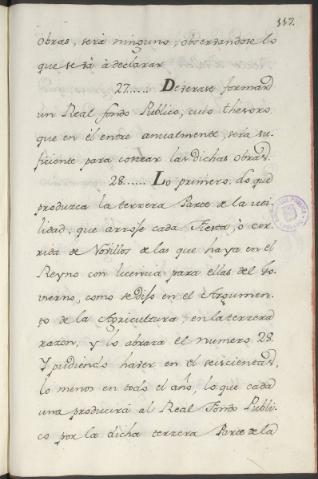 117.
obras, será ninguno, observandose lo
que se vá á declarar
27...... Devense formar
un Real fondo Publico, cuio thesoro
que en él entre anualmente, será su-
ficiente para costear las dichas obras.
28...... Lo primero, lo que
produzca la tercera Parte de la uti-
lidad, que arroje cada Fiesta, ó cor-
rida de Novillos de las que haya en el
Reyno con licencia para ellas del Go-
vierno, como se dijo en el Argumen-
to de la Agricultura, en la tercera
razon, y lo abraza el numero 28.
Y pudiendo haver en él seiscientas,
lo menos en todo el año, lo que cada
una producirá al Real Fondo Publi-
co por la dicha tercera Parte de la